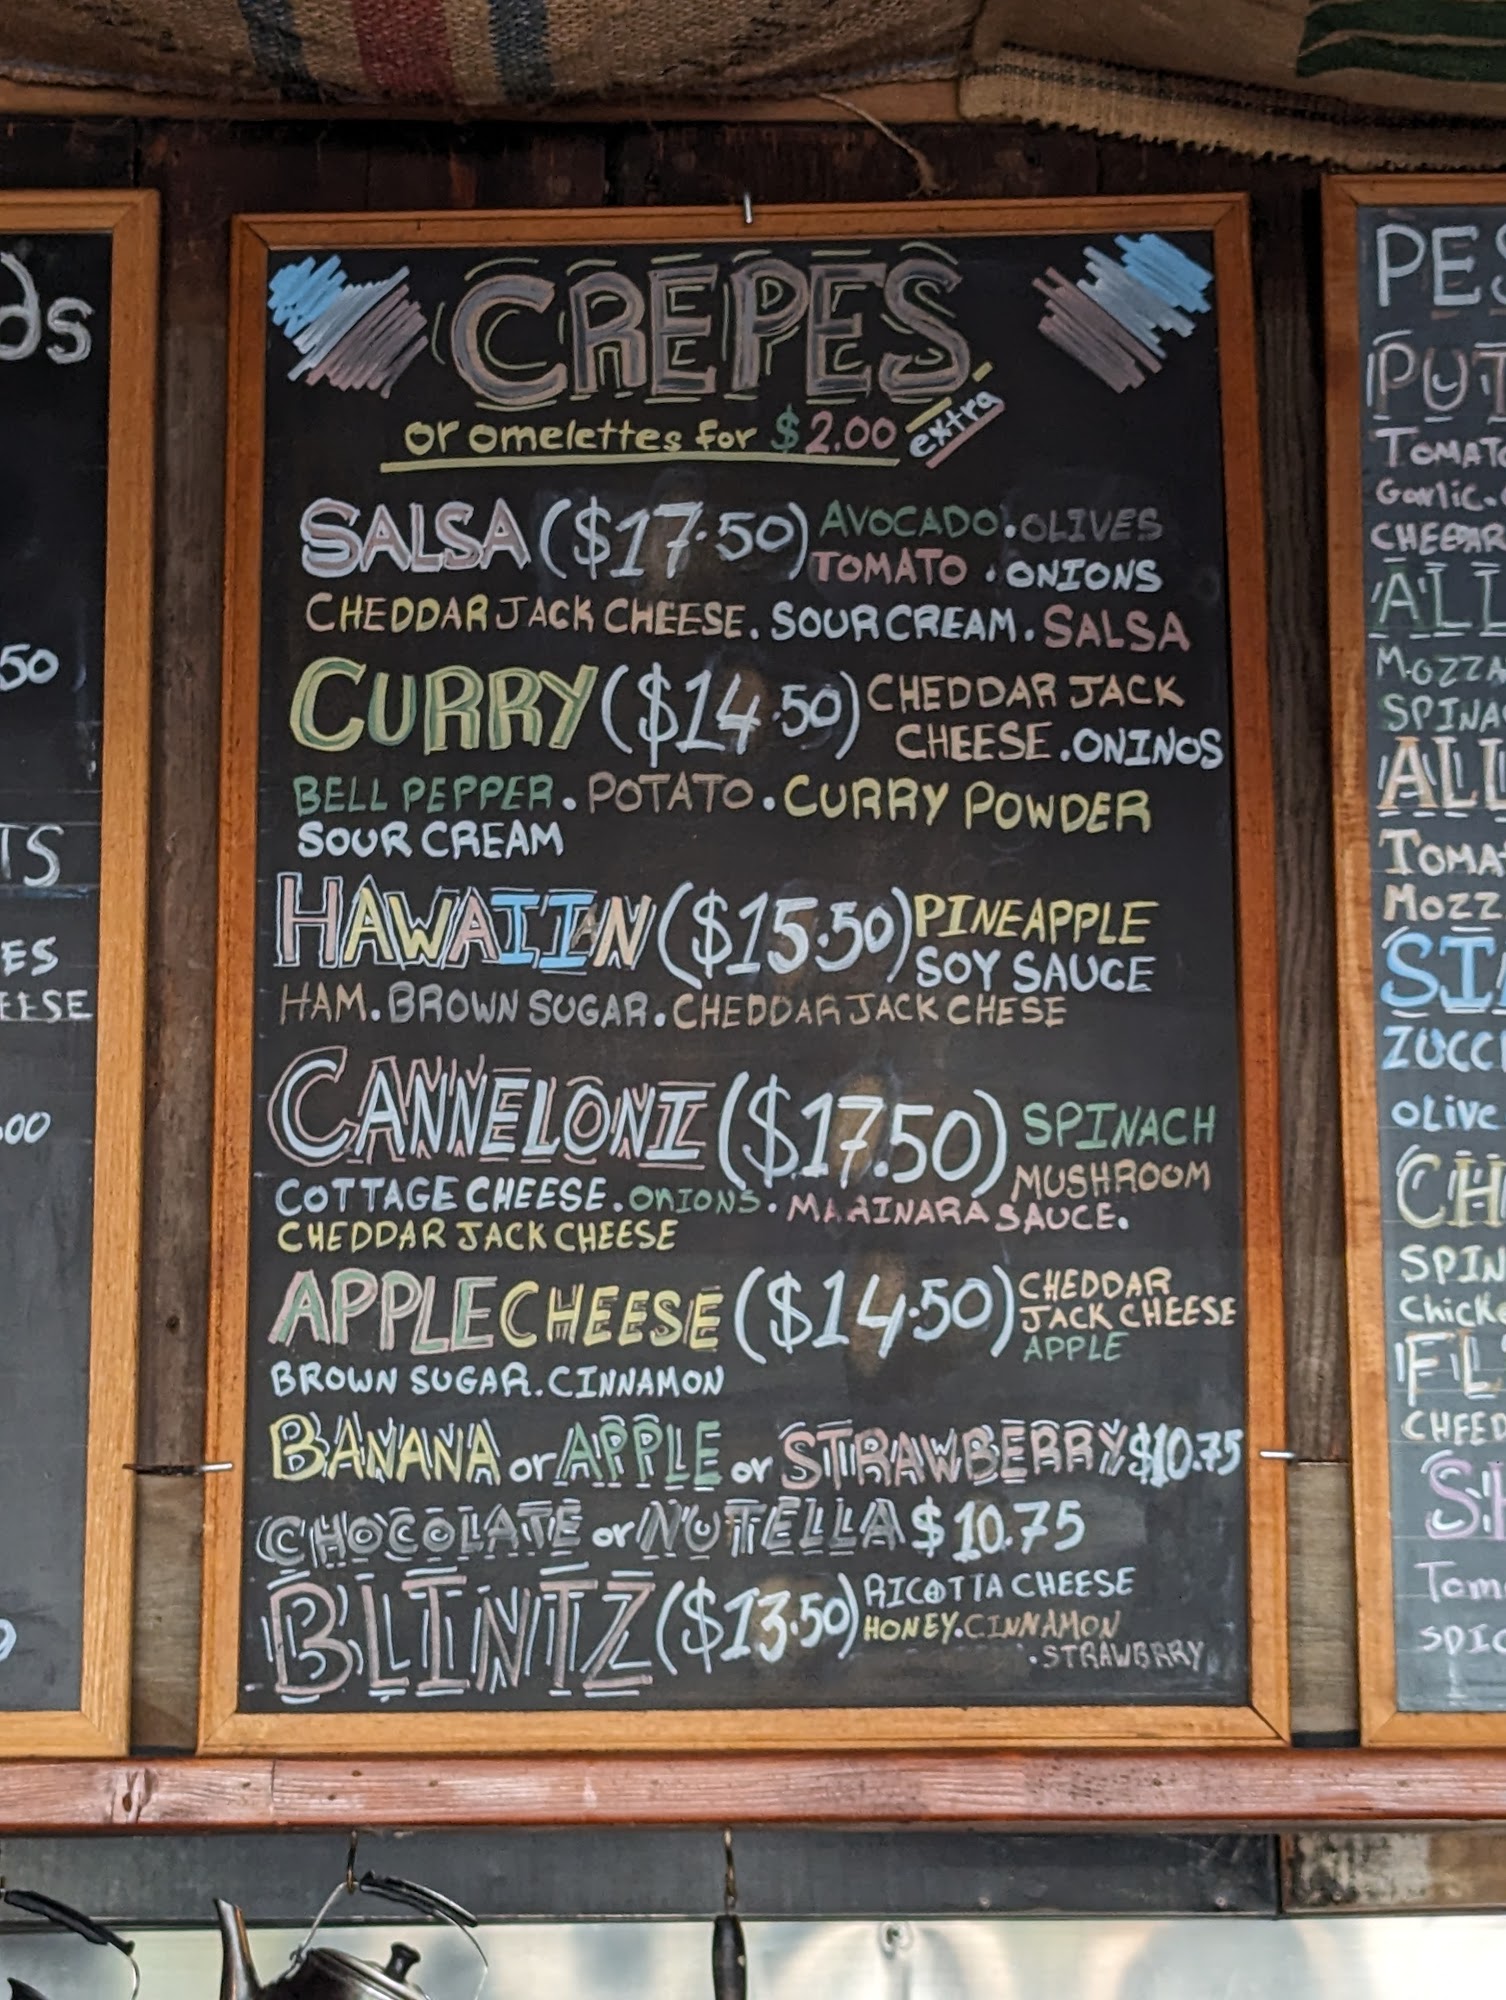 CREPES
or omelettes for $2.00 extra
SALSA ($17.50) AVOCADO . OLIVES
TOMATO . ONIONS
CHEDDAR JACK CHEESE . SOUR CREAM . SALSA
CURRY ($14.50) CHEDDAR JACK
CHEESE . ONINOS
BELL PEPPER . POTATO . CURRY POWDER
SOUR CREAM
HAWAIIAN ($15.50) PINEAPPLE
SOY SAUCE
HAM . BROWN SUGAR . CHEDDAR JACK CHESE
CANNELONI ($17.50) SPINACH
MUSHROOM
COTTAGE CHEESE . ONIONS . MARINARA SAUCE .
CHEDDAR JACK CHEESE
APPLE CHEESE ($14.50) CHEDDAR
JACK CHEESE
APPLE
BROWN SUGAR . CINNAMON
BANANA or APPLE or STRAWBERRY $10.75
CHOCOLATE or NUTELLA $10.75
BLINTZ ($13.50) RICOTTA CHEESE
HONEY . CINNAMON
. STRAWBRRY
ds
50
TS
ES
EESE
00
PES
PUT
TOMATO
Garlic
CHEDDAR
ALL
MOZZA
SPINA
ALL
TOMA
MOZZ
ST
ZUCC
OLIVE
CH
SPIN
Chick
FL
CHEED
Tom
SPIC